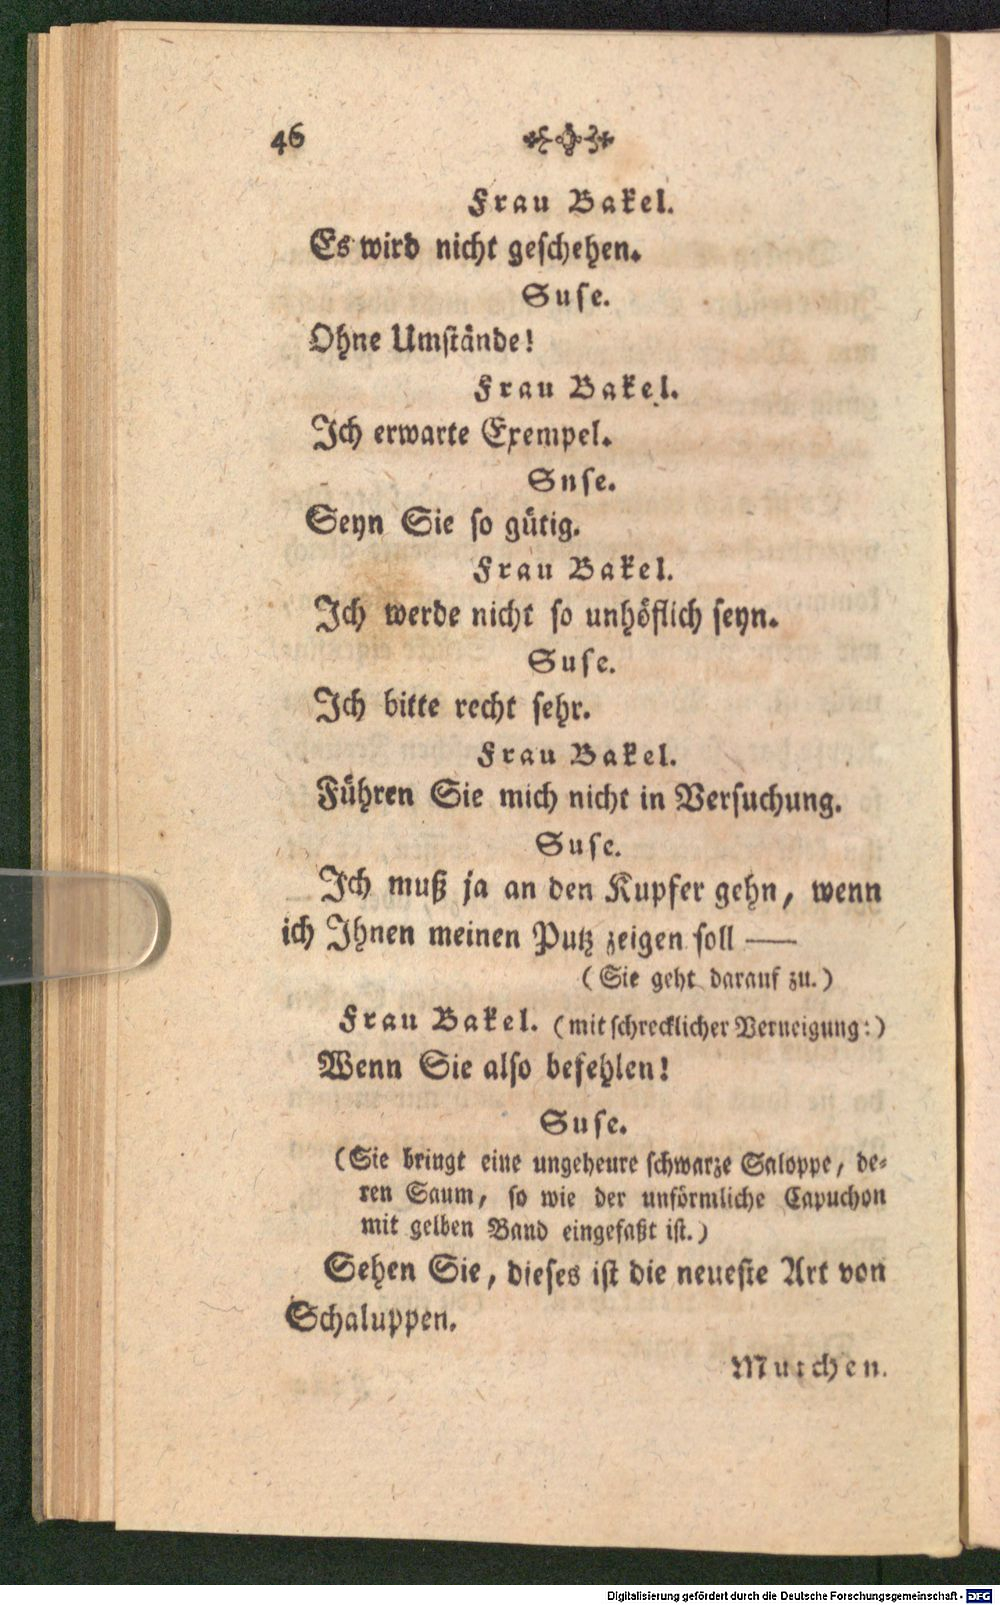 46
Frau Bakel.
Es wird nicht geschehen.
Suse.
Ohne Umstände!
Frau Bakel.
Ich erwarte Exempel.
Snse.
Seyn Sie so gütig.
Frau Bakel.
Ich werde nicht so unhöflich seyn.
Suse.
Ich bitte recht sehr.
Frau Bakel.
Führen Sie mich nicht in Versuchung.
Suse.
Ich muß ja an den Kupfer gehn, wenn
ich Ihnen meinen Putz zeigen soll —
(Sie geht darauf zu.)
Frau Bakel. (mit schrecklicher Verneigung:)
Wenn Sie also befehlen!
Suse.
(Sie bringt eine ungeheure schwarze Saloppe, de-
ren Saum, so wie der unförmliche Capuchon
mit gelben Band eingefaßt ist.)
Sehen Sie, dieses ist die neueste Art von
Schaluppen.
Mutchen.
Digitalisierung gefördert durch die Deutsche Forschungsgemeinschaft - DFG